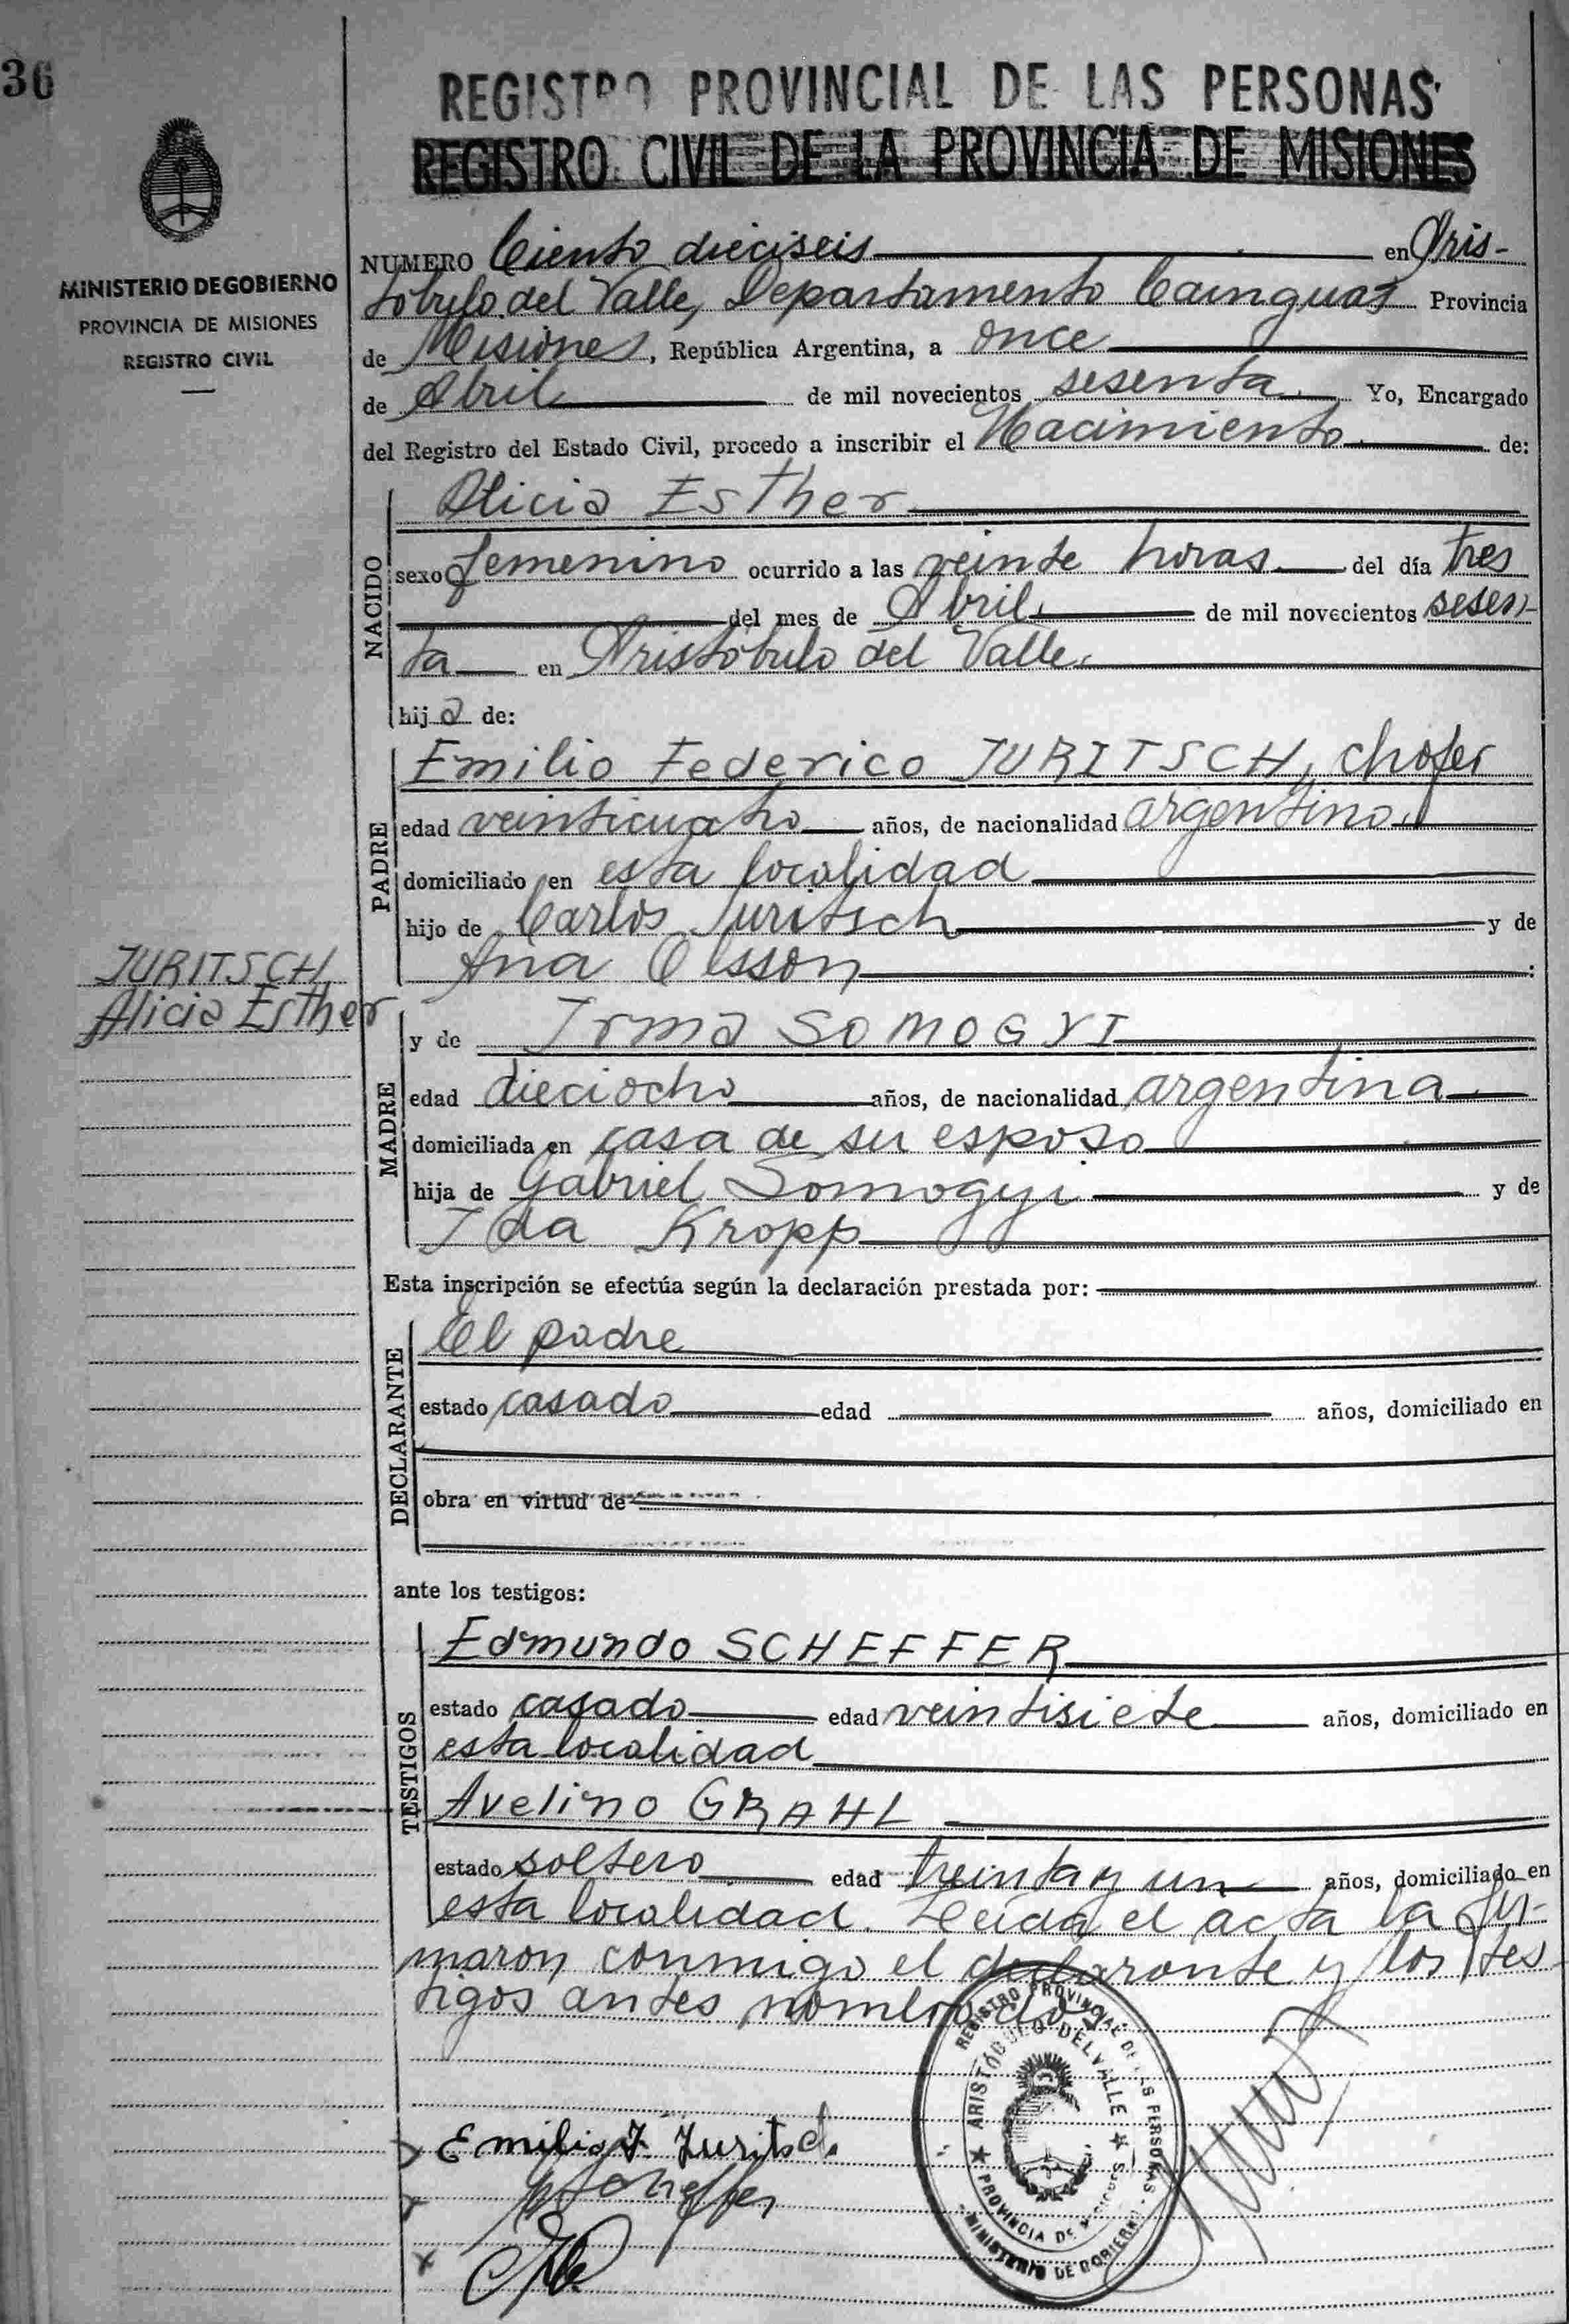 36
REGISTRO PROVINCIAL DE LAS PERSONAS
REGISTRO CIVIL DE LA PROVINCIA DE MISIONES
MINISTERIO DE GOBIERNO
PROVINCIA DE MISIONES
REGISTRO CIVIL
NUMERO Ciento dieciseis en Aris-
tóbulo del Valle, Departamento Cainguas Provincia
de Misiones, República Argentina, a once
de Abril de mil novecientos sesenta Yo, Encargado
del Registro del Estado Civil, procedo a inscribir el Nacimiento de:
NACIDO
Alicia Esther
sexo femenino ocurrido a las veinte horas del día tres
del mes de Abril de mil novecientos sesen-
ta en Aristóbulo del Valle.
hija de:
PADRE
Emilio Federico JURITSCH, chofer
edad veinticuatro años, de nacionalidad argentino,
domiciliado en esta localidad
hijo de Carlos Juritsch y de
Ana Olsson :
JURITSCH
Alicia Esther
MADRE
y de Irma SOMOGYI
edad dieciocho años, de nacionalidad argentina
domiciliada en casa de su esposo
hija de Gabriel Somogyi y de
Ida Kropp
Esta inscripción se efectúa según la declaración prestada por:
DECLARANTE
El padre
estado casado edad años, domiciliado en
obra en virtud de
ante los testigos:
TESTIGOS
Edmundo SCHEFFER
estado casado edad veintisiete años, domiciliado en
esta localidad
Avelino GRAHL
estado soltero edad treinta y un años, domiciliado en
esta localidad. Leida el acta la fir-
maron conmigo el declarante y los tes
tigos antes nombrados
REGISTRO PROVINCIAL DE LAS PERSONAS - MINISTERIO DE GOBIERNO -
ARISTÓBULO DEL VALLE ★ PROVINCIA DE MISIONES ★
Emilio F. Juritsch
Scheffer